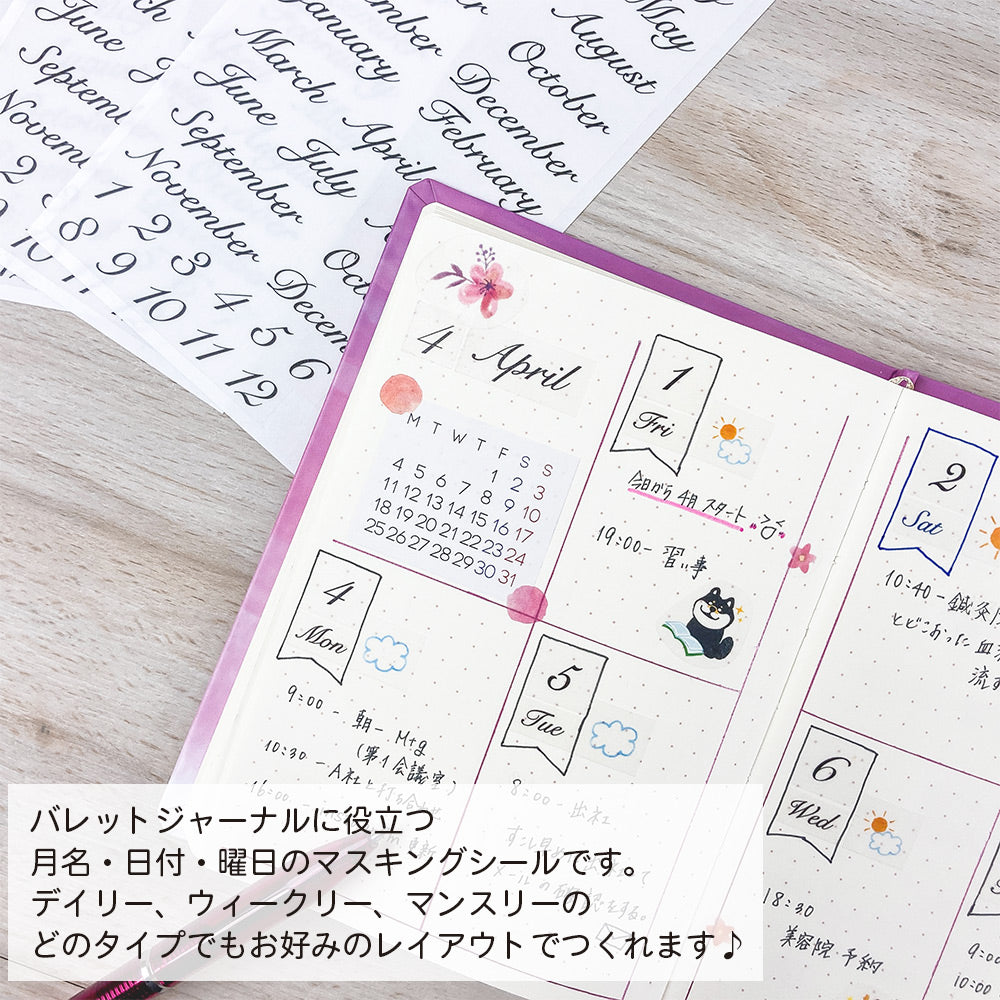 May
June
January
August
March
October
September
June
July
December
November
April
February
September
November
December
1 2 3 4 5 6
8 9 10 11 12
2
10
4 April
M T W T F S S
1 2 3
4 5 6 7 8 9 10
11 12 13 14 15 16 17
18 19 20 21 22 23 24
25 26 27 28 29 30 31
1
Fri
今日から4月スタート
19:00- 習い事
2
Sat
10:40-鍼灸
とどこおった血
流す
4
Mon
9:00 - 朝 Mtg
(第1会議室)
10:30 - A社と打ち合わせ
16:00
5
Tue
8:00- 出社
6
Wed
18:30
美容院 予約
9:00
10:00
バレットジャーナルに役立つ
月名・日付・曜日のマスキングシールです。
デイリー、ウィークリー、マンスリーの
どのタイプでもお好みのレイアウトでつくれます♪